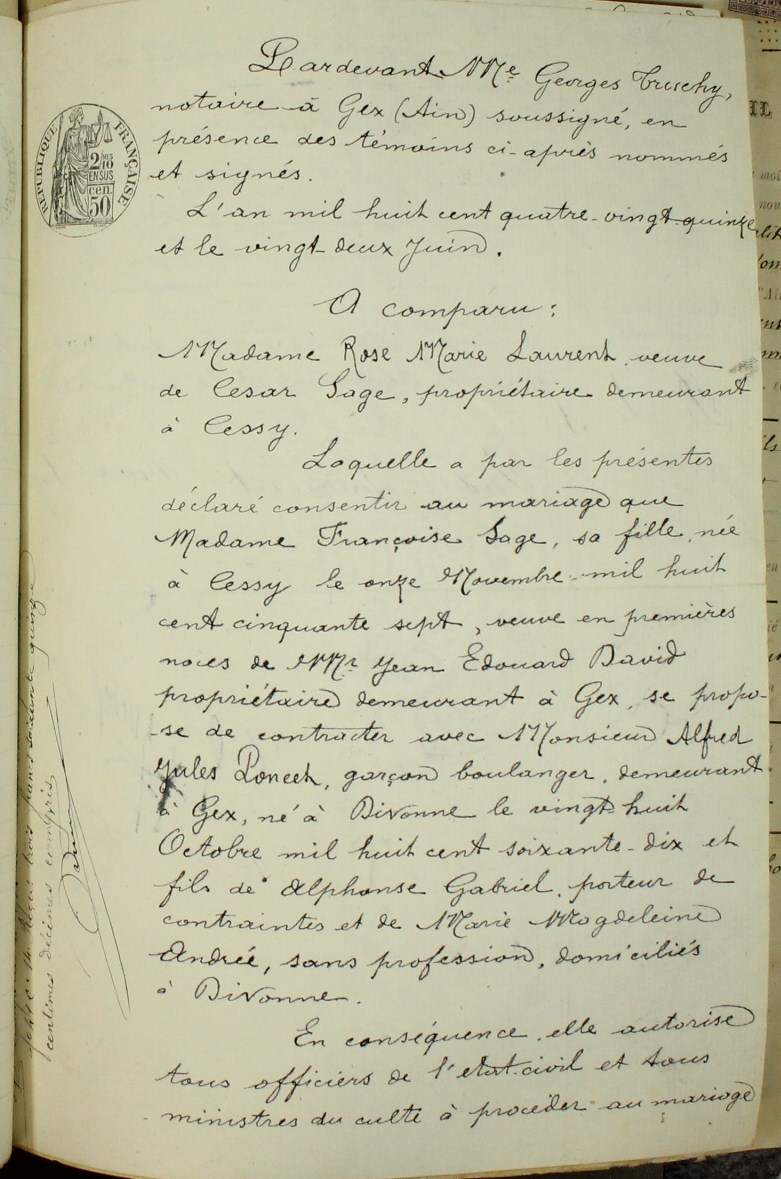 Pardevant Me Georges Truchy,
notaire à Gex (Ain) soussigné, en
présence des témoins ci-après nommés
et signés.
L'an mil huit cent quatre-vingt-quinze
et le vingt-deux Juin.
A comparu :
Madame Rose Marie Laurent, veuve
de Cesar Sage, propriétaire demeurant
à Cessy.
Laquelle a par les présentes
déclaré consentir au mariage que
Madame Françoise Sage, sa fille, née
à Cessy le onze Novembre mil huit
cent cinquante sept, veuve en premières
noces de Mr Jean Edouard David
propriétaire demeurant à Gex, se propo-
-se de contracter avec Monsieur Alfred
Jules Poncet, garçon boulanger, demeurant
à Gex, né à Divonne le vingt-huit
Octobre mil huit cent soixante-dix et
fils de Alphonse Gabriel, porteur de
contraintes et de Marie Magdeleine
Andrée, sans profession, domiciliés
à Divonne.
En conséquence, elle autorise
tous officiers de l'etat-civil et tous
ministres du culte à procéder au mariage
RÉPUBLIQUE FRANÇAISE
2/10 mes
EN SUS
50 cen.
Reçu trois francs soixante quinze
centimes décimes compris,